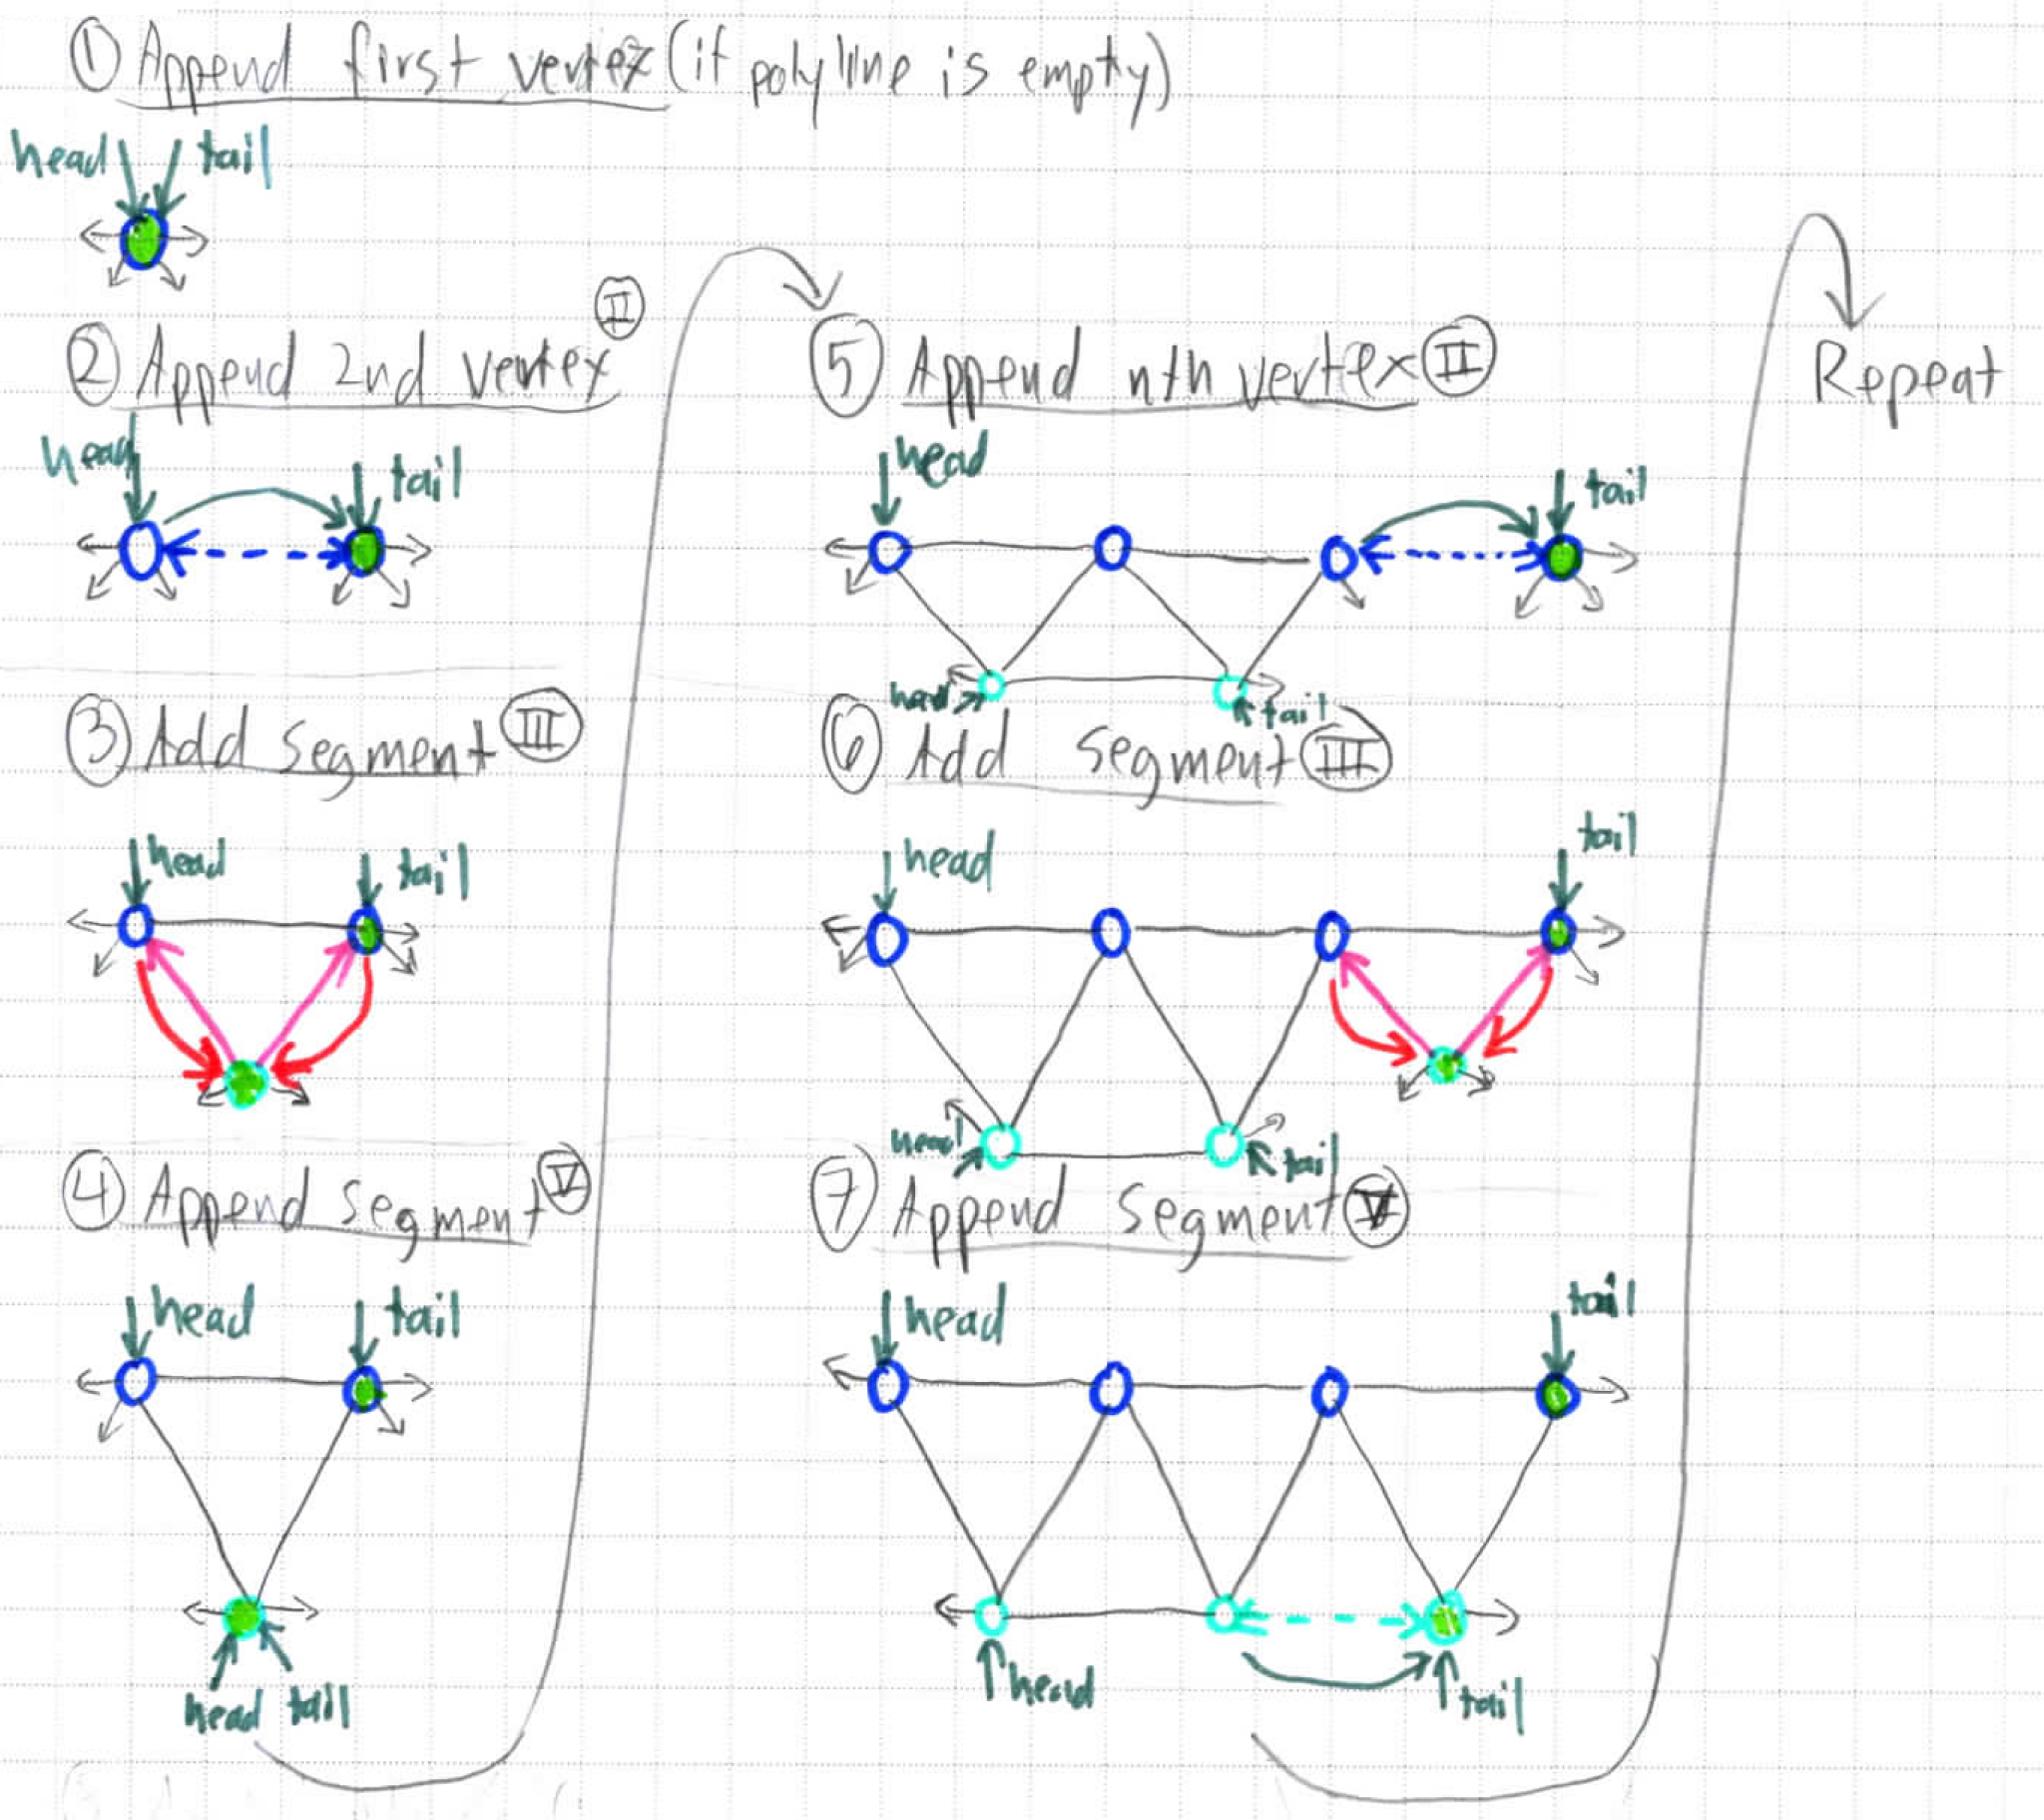 ① Append first vertex (if polyline is empty)
head tail
② Append 2nd vertex Ⓘ Ⓘ
head tail
③ Add segment III
head tail
④ Append segment V
head tail
head tail
⑤ Append nth vertex II
head tail
head tail
⑥ Add segment III
head tail
head tail
⑦ Append segment V
head tail
head tail
Repeat